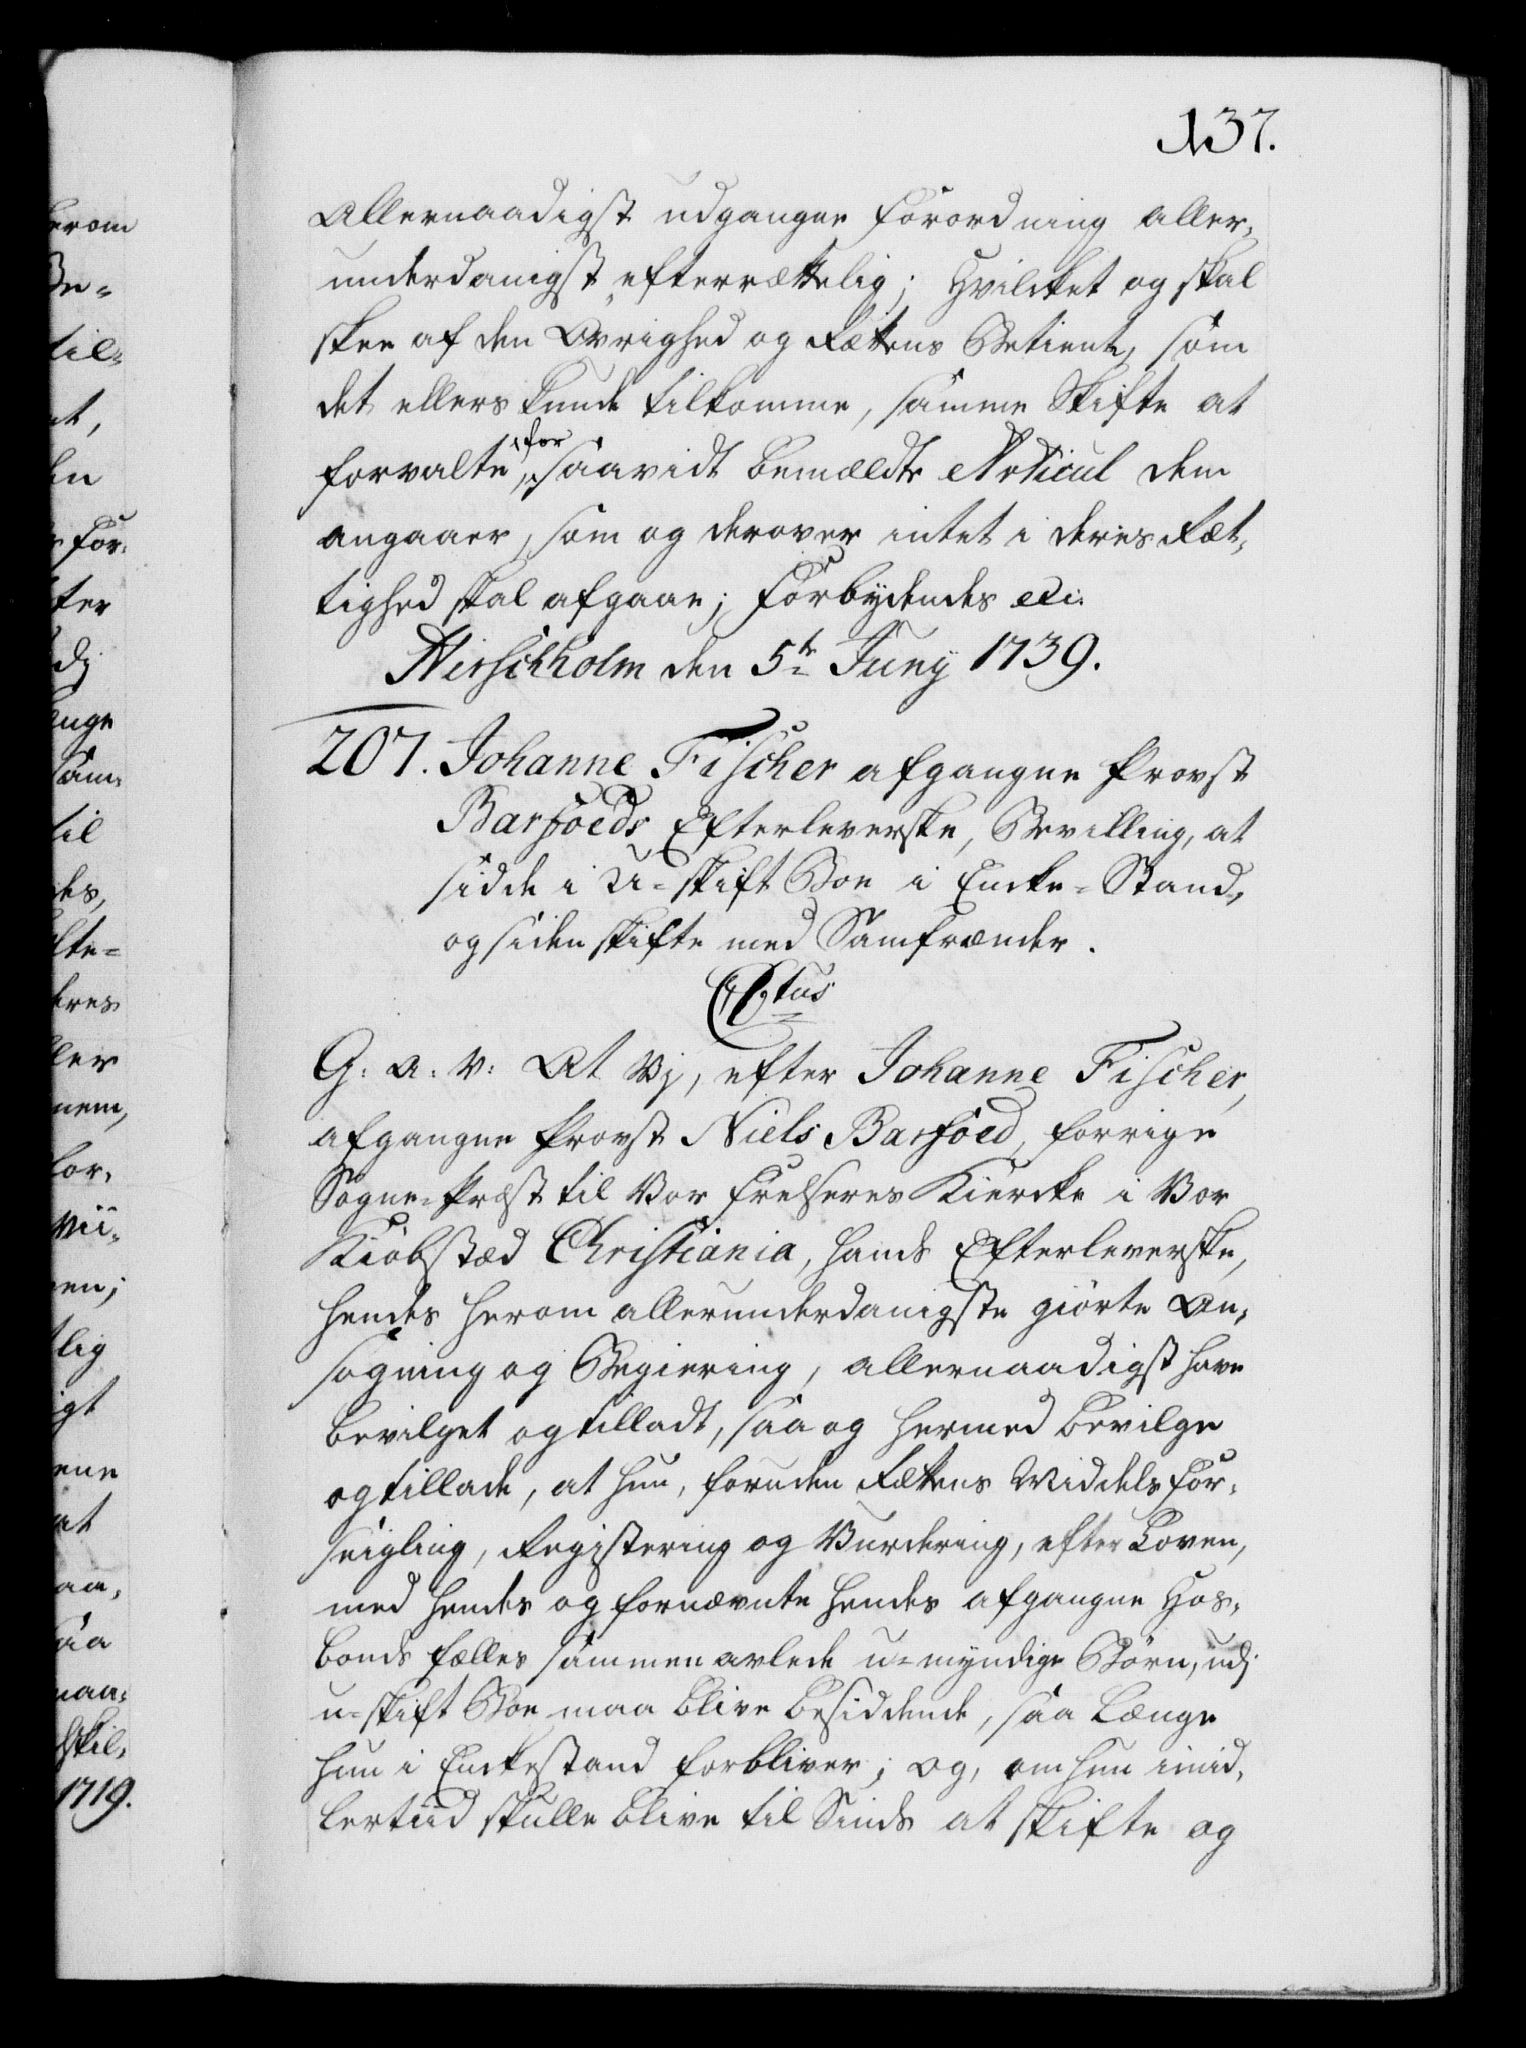 137.
Allernaadigst udgangne Forordning aller-
underdanigst efterrættelig; Hvilcket og skal
skee af den Øvrighed og Rættens Betiente, som
det ellers kunde tilkomme, samme Skifte at
forvalte, for saavidt bemældte Articul dem
angaaer, som og derover intet i deres Ræt-
tighed skal afgaae; Forbydendes etc.
Hirschholm den 5te Juny 1739.
207. Johanne Fischer afgangne Provst
Barfoeds Efterleverske, Bevilling, at
sidde i U-skift Boe i Encke-Stand,
og siden skifte med Samfrænder.
C 6tus
G. A. V: At Vj, efter Johanne Fischer,
afgangne Provst Niels Barfoed, forrige
Sogne-Præst til Vor Frelseres Kiercke i Vor
Kiøbstæd Christiania, hands Efterleverske,
hendes herom allerunderdanigste giorte An-
søgning og Begiering, allernaadigst have
bevilget og tilladt, saa og hermed bevilge
og tillade, at hun, foruden Rættens Middels For-
seigling, Registering og Vurdering, efter Loven,
med hendes og fornævnte hendes afgangne Hos-
bonds fælles sammen avlede u-myndige Børn, udj
u-skift Boe maa blive besiddende, saa længe
hun i Enckestand forbliver; og, om hun imid-
lertiid skulle blive til Sinds at skifte og
erom
Be-
til-
t,
en
for-
ter
dj
ange
sam-
til
des,
lte-
eres
ler
nem,
for-
vii-
en;
lig
igt
ene
at
aa-
saa
naa-
skil-
1719.